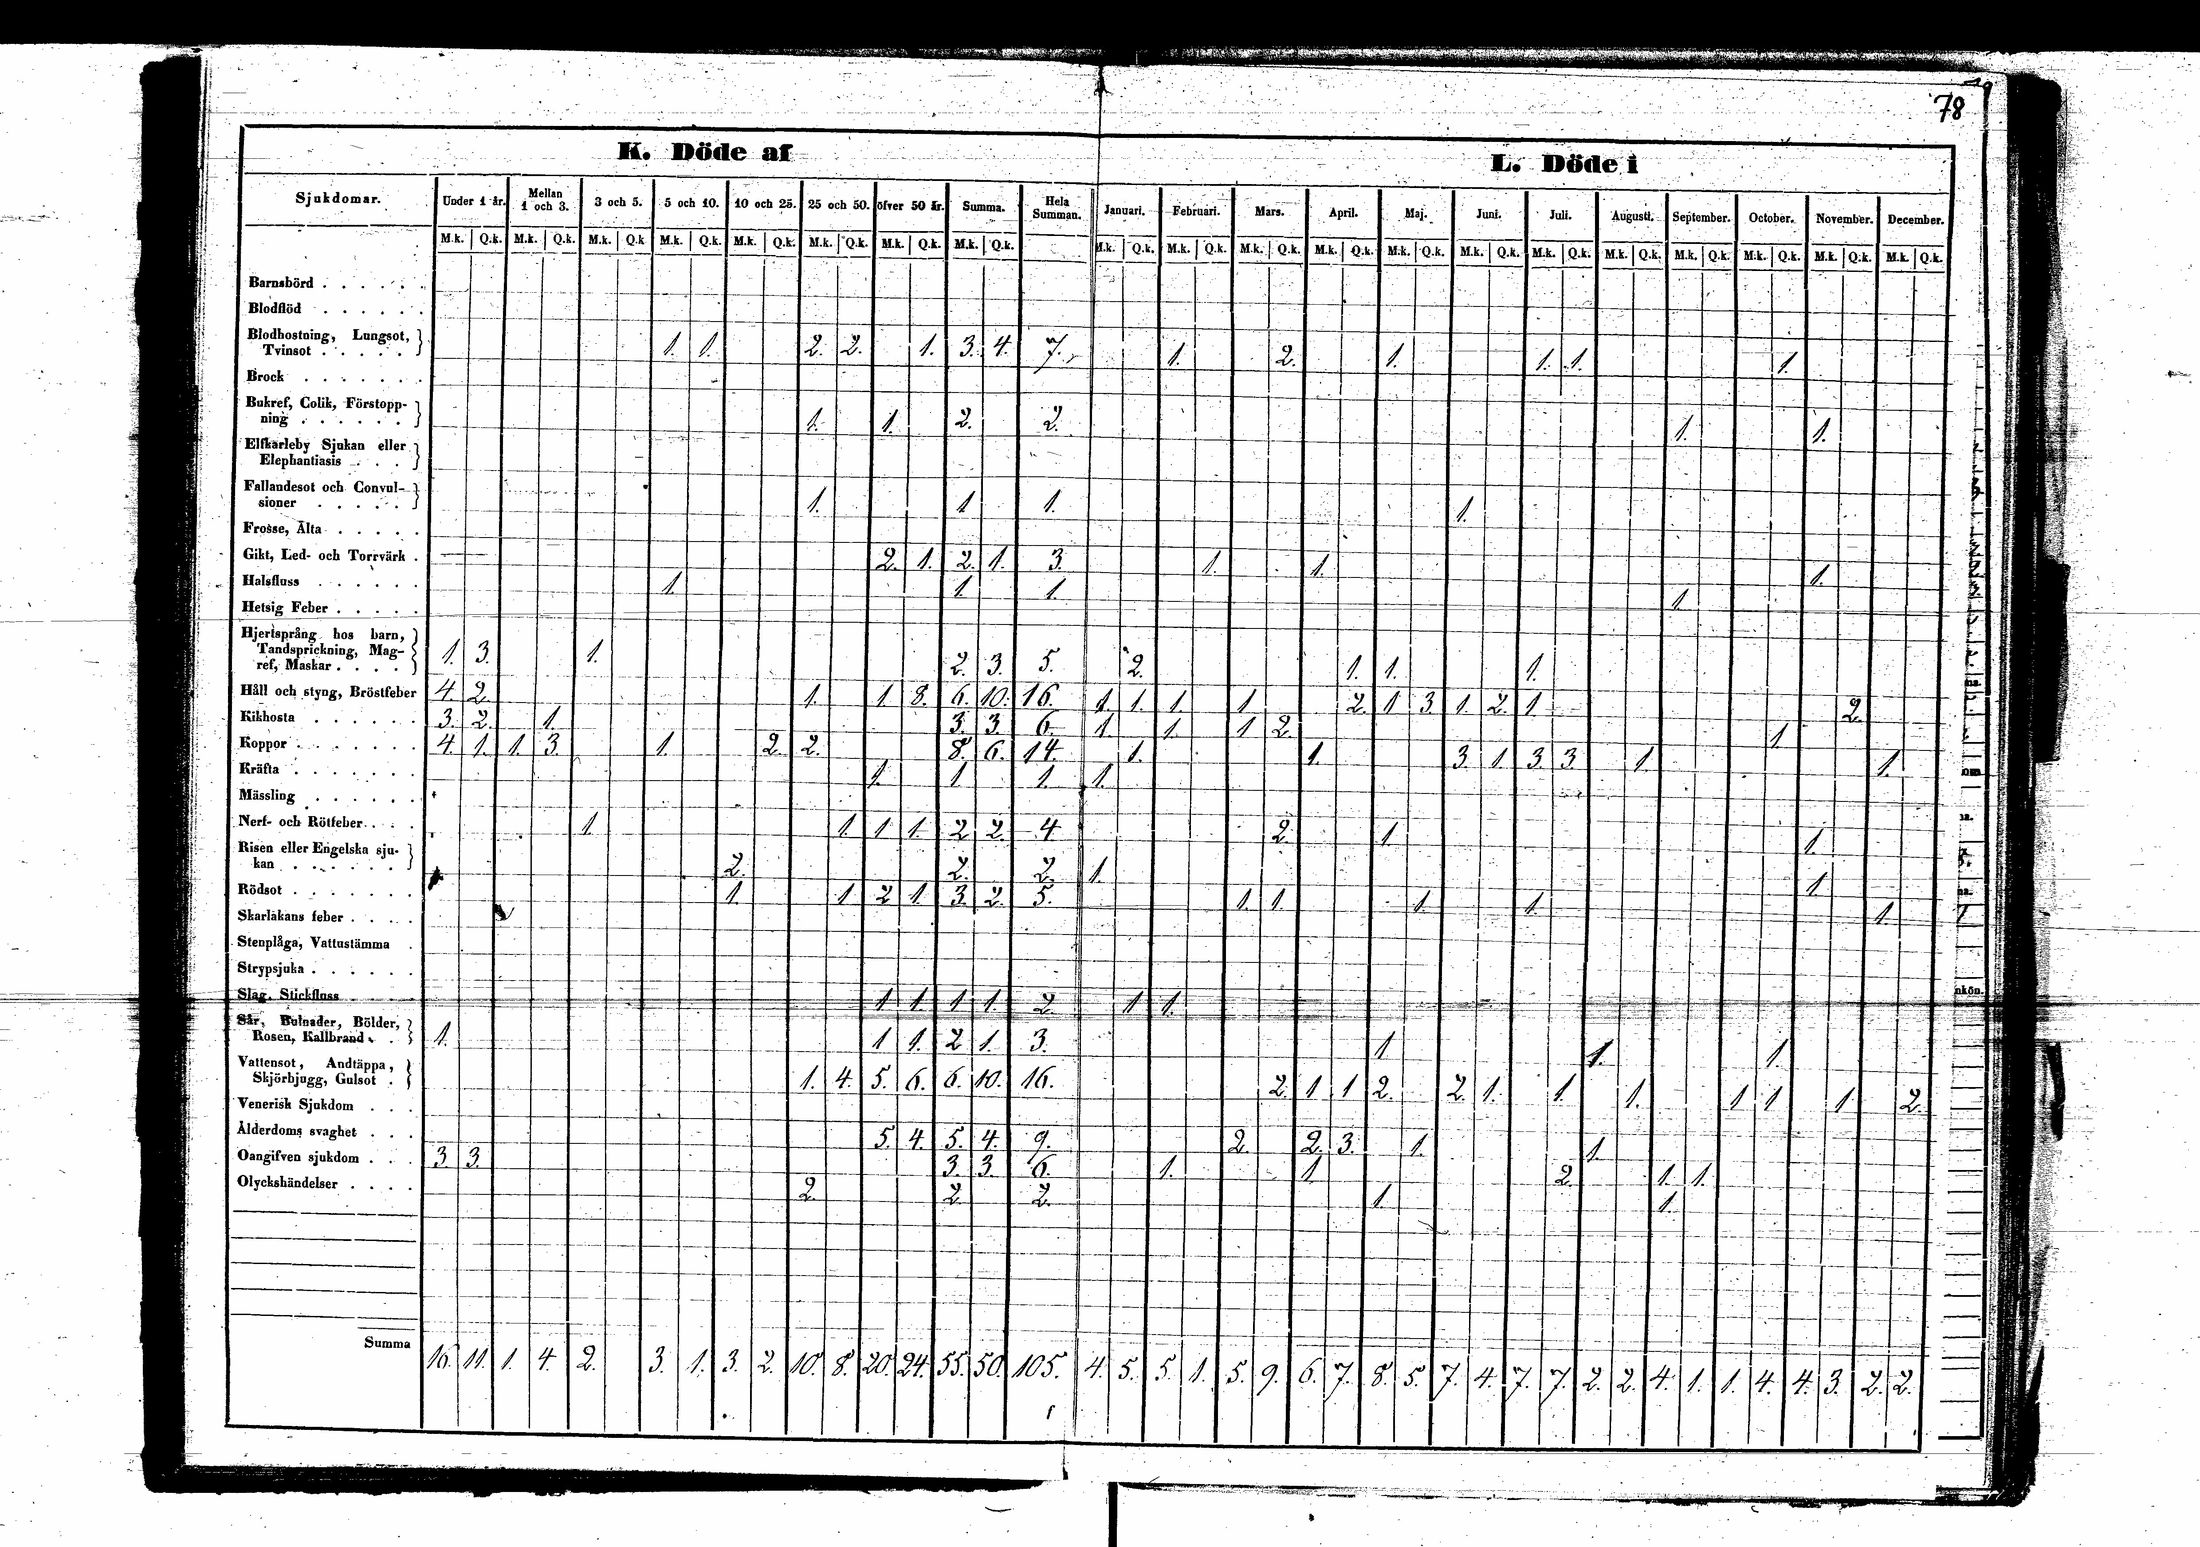 78
K. Döde af
L. Döde i
Sjukdomar. Under 1 år. Mellan 1 och 3. 3 och 5. 5 och 10. 10 och 25. 25 och 50. öfver 50 år. Summa. Hela Summan. Januari. Februari. Mars. April. Maj. Juni. Juli. Augusti. September. October. November. December.
M.k. Q.k. M.k. Q.k. M.k. Q.k M.k. Q.k. M.k. Q.k. M.k. Q.k. M.k. Q.k. M.k. Q.k. M.k. Q.k. M.k. Q.k. M.k. Q.k. M.k. Q.k. M.k. Q.k. M.k. Q.k. M.k. Q.k. M.k. Q.k. M.k. Q.k. M.k. Q.k. M.k. Q.k. M.k. Q.k.
Barnsbörd . . . . . .
Blodflöd . . . . . .
Blodhostning, Lungsot,
Tvinsot . . . . . 1. 1. 2. 2. 1. 3. 4. 7. 1. 2. 1. 1. 1. 1.
Brock . . . . . . .
Bukref, Colik, Förstopp-
ning . . . . . . 1. 1. 2. 2. 1. 1.
Elfkarleby Sjukan eller
Elephantiasis . . .
Fallandesot och Convul-
sioner . . . . . 1. 1 1. 1.
Frosse, Älta . . . . .
Gikt, Led- och Torrvärk . 2. 1. 2. 1. 3. 1. 1. 1.
Halsfluss . . . . . . 1. 1. 1. 1.
Hetsig Feber . . . . .
Hjertsprång hos barn,
Tandsprickning, Mag-
ref, Maskar . . . . 1. 3. 1. 2. 3. 5. 2. 1. 1. 1.
Håll och styng, Bröstfeber 4. 2. 1. 1 8. 6. 10. 16. 1. 1. 1. 1. 2. 1 3. 1. 2. 1 2.
Kikhosta . . . . . . 3. 2. 1. 3. 3. 6. 1. 1. 1 2. 1.
Koppor . . . . . . . 4. 1. 1. 3. 1. 2. 2. 8. 6. 14. 1. 1. 3. 1. 3. 3. 1. 1.
Kräfta . . . . . . . 1. 1 1. 1.
Mässling . . . . . .
Nerf- och Rötfeber . . . 1. 1. 1 1. 2 2. 4 2. 1. 1.
Risen eller Engelska sju-
kan . . . . . . 2. 2. 2. 1. 1.
Rödsot . . . . . . . 1. 1 2 1. 3. 2. 5. 1. 1. 1. 1. 1.
Skarlakans feber . . . .
Stenplåga, Vattustämma .
Strypsjuka . . . . . .
Slag. Stickfluss 1 1. 1 1. 2 1 1.
Sår, Bulnader, Bölder,
Rosen, Kallbrand . . 1. 1 1. 2 1. 3. 1 1. 1.
Vattensot, Andtäppa,
Skjörbjugg, Gulsot . 1. 4. 5. 6. 6. 10. 16. 2. 1 1 2. 2. 1. 1. 1. 1 1. 1. 2.
Venerisk Sjukdom . . .
Ålderdoms svaghet . . . 5. 4. 5. 4. 9. 2. 2. 3. 1. 1.
Oangifven sjukdom . . . 3. 3. 3. 3. 6. 1. 1. 2. 1. 1.
Olyckshändelser . . . . 2. 2. 2. 1. 1.
Summa 16. 11. 1. 4. 2. 3. 1. 3. 2. 10. 8. 20. 24. 55. 50. 105. 4. 5. 5. 1. 5. 9. 6. 7. 8. 5. 7. 4. 7. 7. 2. 2. 4. 1. 1. 4. 4. 3. 2. 2.